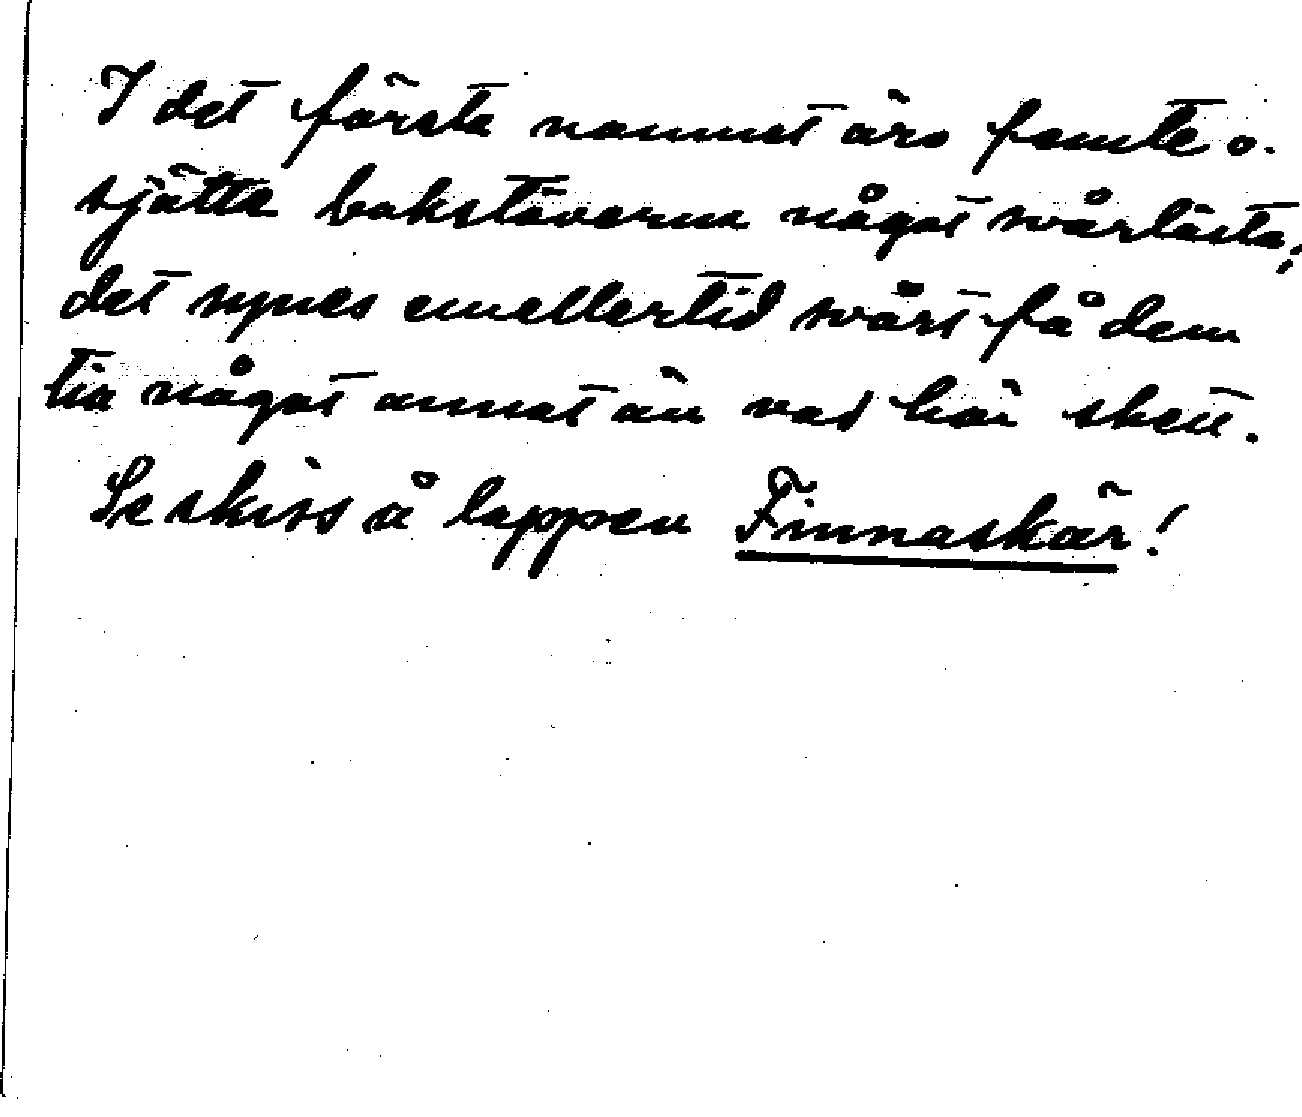 I det första namnet äro femte o.
sjätte bokstäverna något svårlästa;
det synes emellertid svårt få dem
till något annat än vad här skett.
Se skiss å lappen Finnaskär!